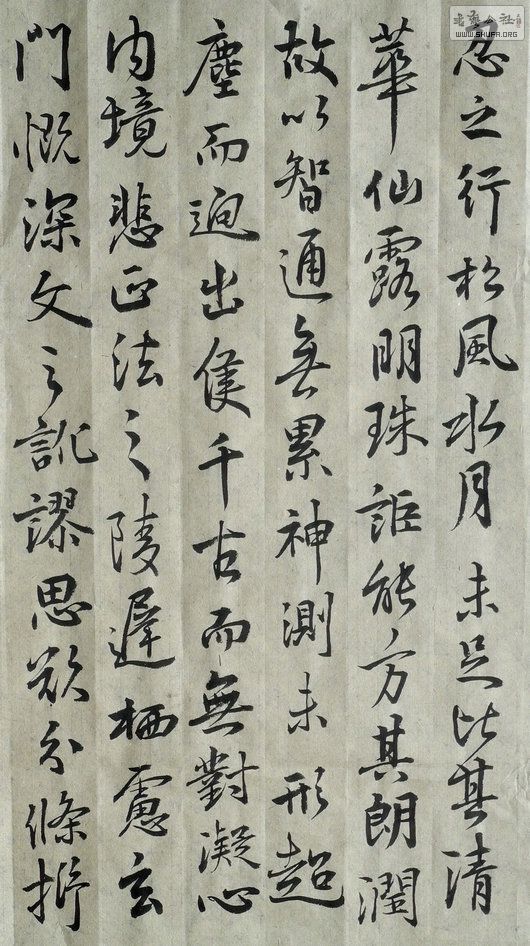 忍之行松風水月未足比其清
華仙露明珠詎能方其朗潤
故以智通無累神測未形超
塵而迥出隻千古而無對凝心
內境悲正法之陵遲栖慮玄
門慨深文之訛謬思欲分條析
書藝公社
WWW.SHUFA.ORG